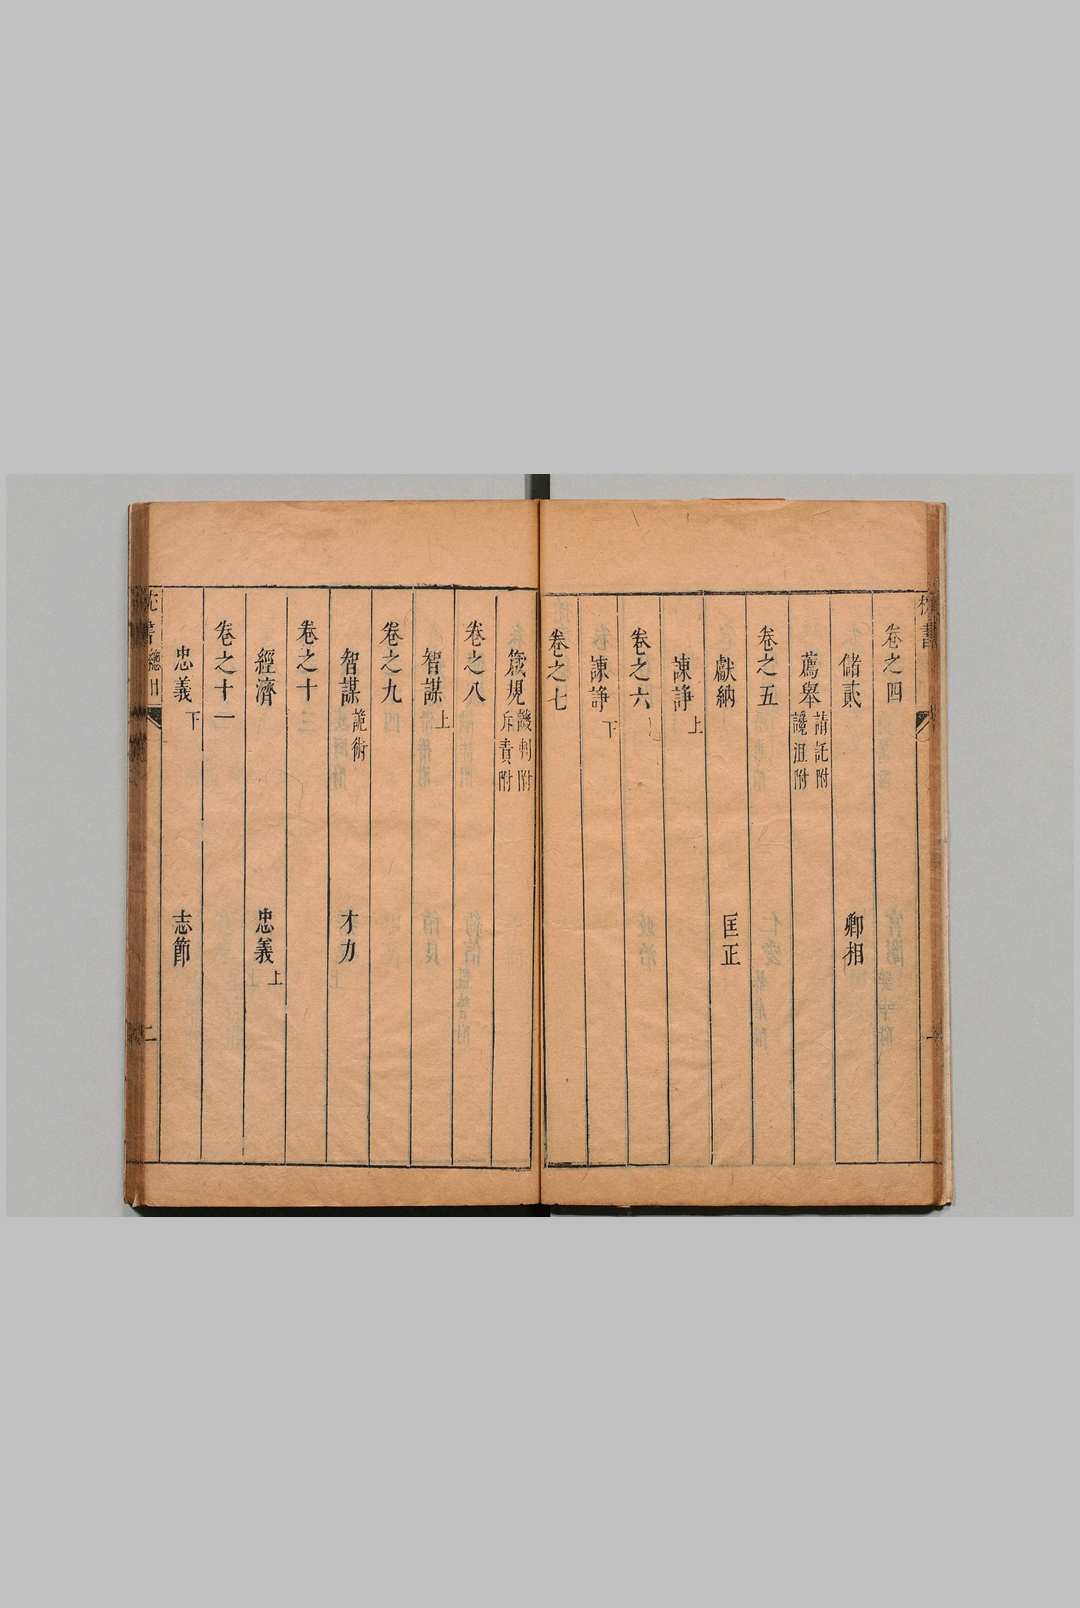 卷之四
儲貳 卿相
薦舉 請託附 讒沮附
卷之五
獻納 匡正
諫諍 上
卷之六
諫諍 下
卷之七
箴規 譏刺附 斥責附
卷之八
智謀 上
卷之九
智謀 詭術 才力
卷之十
經濟 忠義 上
卷之十一
忠義 下 志節
書總目
二